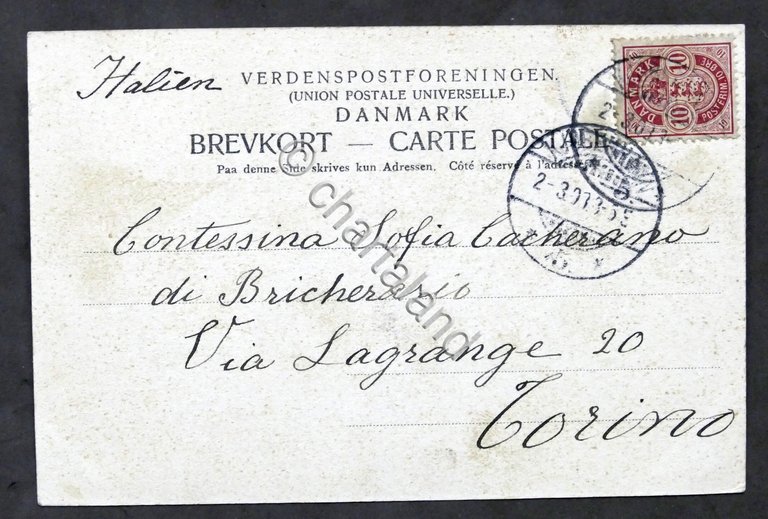 Halien
VERDENSPOSTFORENINGEN.
(UNION POSTALE UNIVERSELLE.)
DANMARK
BREVKORT — CARTE POSTALE
Paa denne Side skrives kun Adressen. Côté réservé à l'adresse.
DANMARK
10 10
POSTFRIM 10 ØRE
2-3.01.3-5 E
Contessina Sofia Cacherano
di Bricherasio
Via Lagrange 20
Torino
© chartaland